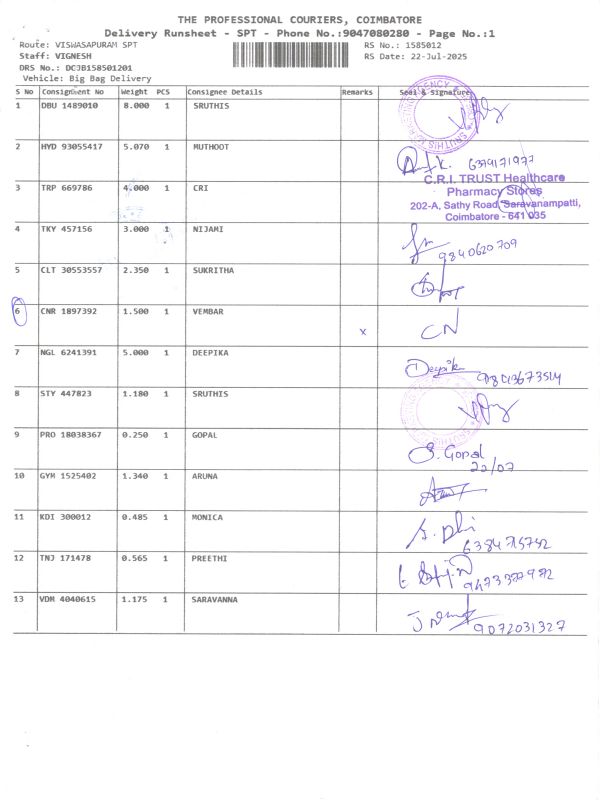 THE PROFESSIONAL COURIERS, COIMBATORE
Delivery Runsheet - SPT - Phone No.:9047080280 - Page No.:1
Route: VISWASAPURAM SPT RS No.: 1585012
Staff: VIGNESH RS Date: 22-Jul-2025
DRS No.: DCJB158501201
Vehicle: Big Bag Delivery
S No Consignment No Weight PCS Consignee Details Remarks Seal & Signature
1 DBU 1489010 8.000 1 SRUTHIS
2 HYD 93055417 5.070 1 MUTHOOT
6379171977
3 TRP 669786 4.000 1 CRI
C.R.I. TRUST Healthcare
Pharmacy Stores
202-A, Sathy Road, Saravanampatti,
Coimbatore - 641 035
4 TKY 457156 3.000 1 NIJAMI
9840620709
5 CLT 30553557 2.350 1 SUKRITHA
6 CNR 1897392 1.500 1 VEMBAR
x CN
7 NGL 6241391 5.000 1 DEEPIKA
Deepika
8 STY 447823 1.180 1 SRUTHIS
9 PRO 18038367 0.250 1 GOPAL
S. Gopal
22/07
10 GYM 1525402 1.340 1 ARUNA
11 KDI 300012 0.485 1 MONICA
12 TNJ 171478 0.565 1 PREETHI
13 VDM 4040615 1.175 1 SARAVANNA
9072031327